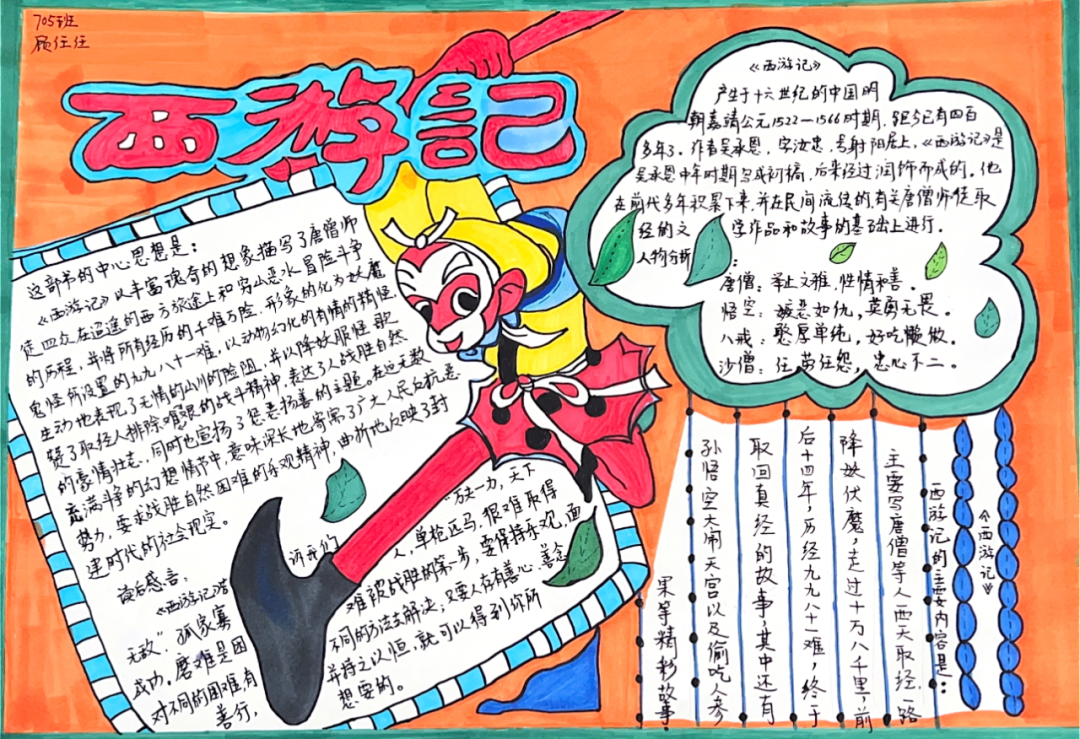 705班
顾任任
西游記
这部书的中心思想是：
《西游记》以丰富瑰奇的想象描写了唐僧师
徒四众在迢遥的西方旅途上和穷山恶水冒险斗争
的历程，并将所有经历的千难万险，形象的化为妖魔
鬼怪所设置的九九八十一难，以动物幻化的有情的精怪，
生动地表现了无情的山川的险阻，并以降妖服怪歌
赞了取经人排除艰难的战斗精神，表达了人战胜自然
的豪情壮志，同时也宣扬了惩恶扬善的主题。在近无数
充满斗争的幻想情节中，意味深长地寄寓了广大人民反抗恶
势力，要求战胜自然困难的乐观精神，曲折地反映了封
建时代的社会现实。
读后感言：
《西游记》告诉我们 "万夫一力，天下
无敌" 孤家寡人，单枪匹马，很难取得
成功，磨难是困难被战胜的第一步，要保持乐观，面
对不同的困难，有不同的方法去解决；又要人存有善心、善念
善行，并持之以恒，就可以得到你所
想要的。
《西游记》
产生于十六世纪的中国明
朝嘉靖公元1522—1566时期，距今已有四百
多年了。作者吴承恩，字汝忠，号射阳居士，《西游记》是
吴承恩中年时期写成初稿，后来经过润饰而成的。他
在前代多年积累下来，并在民间流传的有关唐僧师徒取
经的文学作品和故事的基础上进行。
人物分析：
唐僧：举止文雅，性情和善。
悟空：嫉恶如仇，英勇无畏。
八戒：憨厚单纯，好吃懒做。
沙僧：任劳任怨，忠心不二。
《西游记》
西游记的主要内容是：
主要写唐僧等人西天取经，一路
降妖伏魔，走过十万八千里，前
后十四年，历经九九八十一难，终于
取回真经的故事，其中还有
孙悟空大闹天宫以及偷吃人参
果等精彩故事。